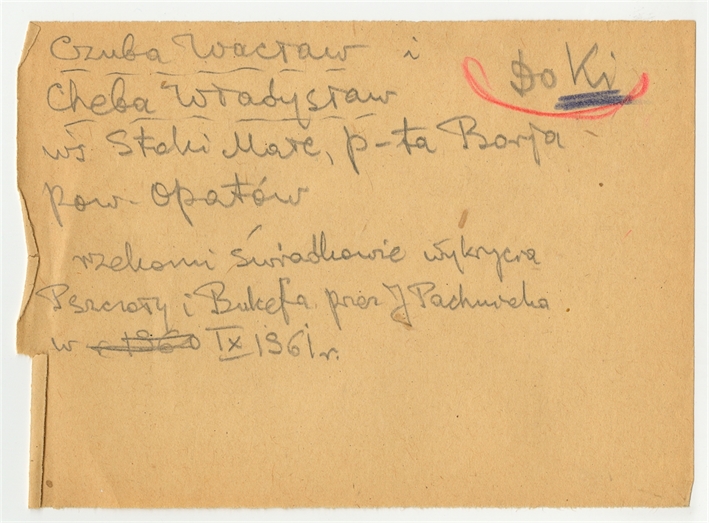 Czuba Wacław i
Do Ki
Cheba Władysław
wś Stoki Małe, p-ta Borja
pow. Opatów
rzekomi świadkowie wykrycia
Pszczoły i Bukefa przez J Pachniaka
w 1960 IX 1961 r.